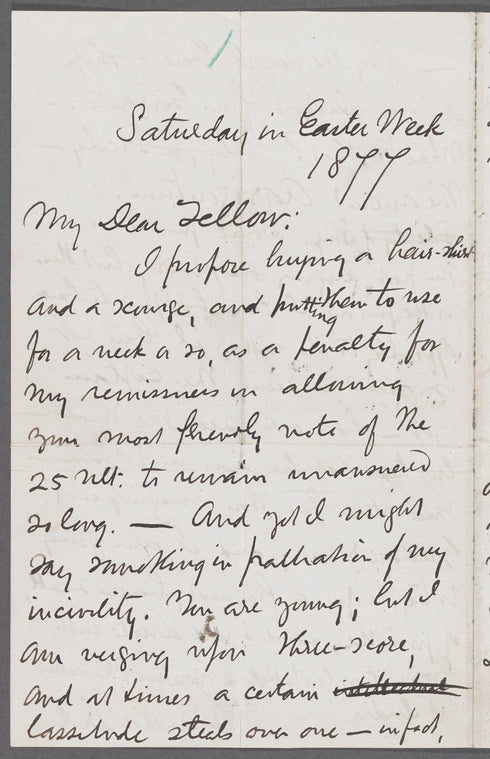 Saturday in Easter Week
1877
My Dear Fellow:
I propose buying a hair-shirt
and a scourge, and putting them to use
for a week or so, as a penalty for
my remissness in allowing
your most friendly note of the
25 ult: to remain unanswered
so long. — And yet I might
say something in palliation of my
incivility. You are young; but I
am verging upon three-score,
and at times a certain
lassitude steals over one — in fact,